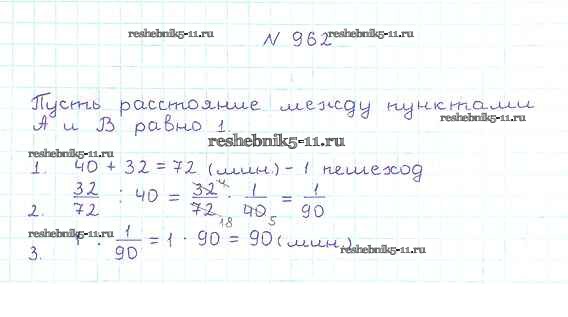 reshebnik5-11.ru № 962 reshebnik5-11.ru
Пусть расстояние между пунктами
А и В равно 1 reshebnik5-11.ru
reshebnik5-11.ru
reshebnik5-11.ru
1. 40 + 32 = 72 (мин.) - 1 пешеход
2. 32/72 : 40 = 32/72 · 1/40 = 1/90
4 18 5
reshebnik5-11.ru
3. 1 : 1/90 = 1 · 90 = 90 (мин.) reshebnik5-11.ru